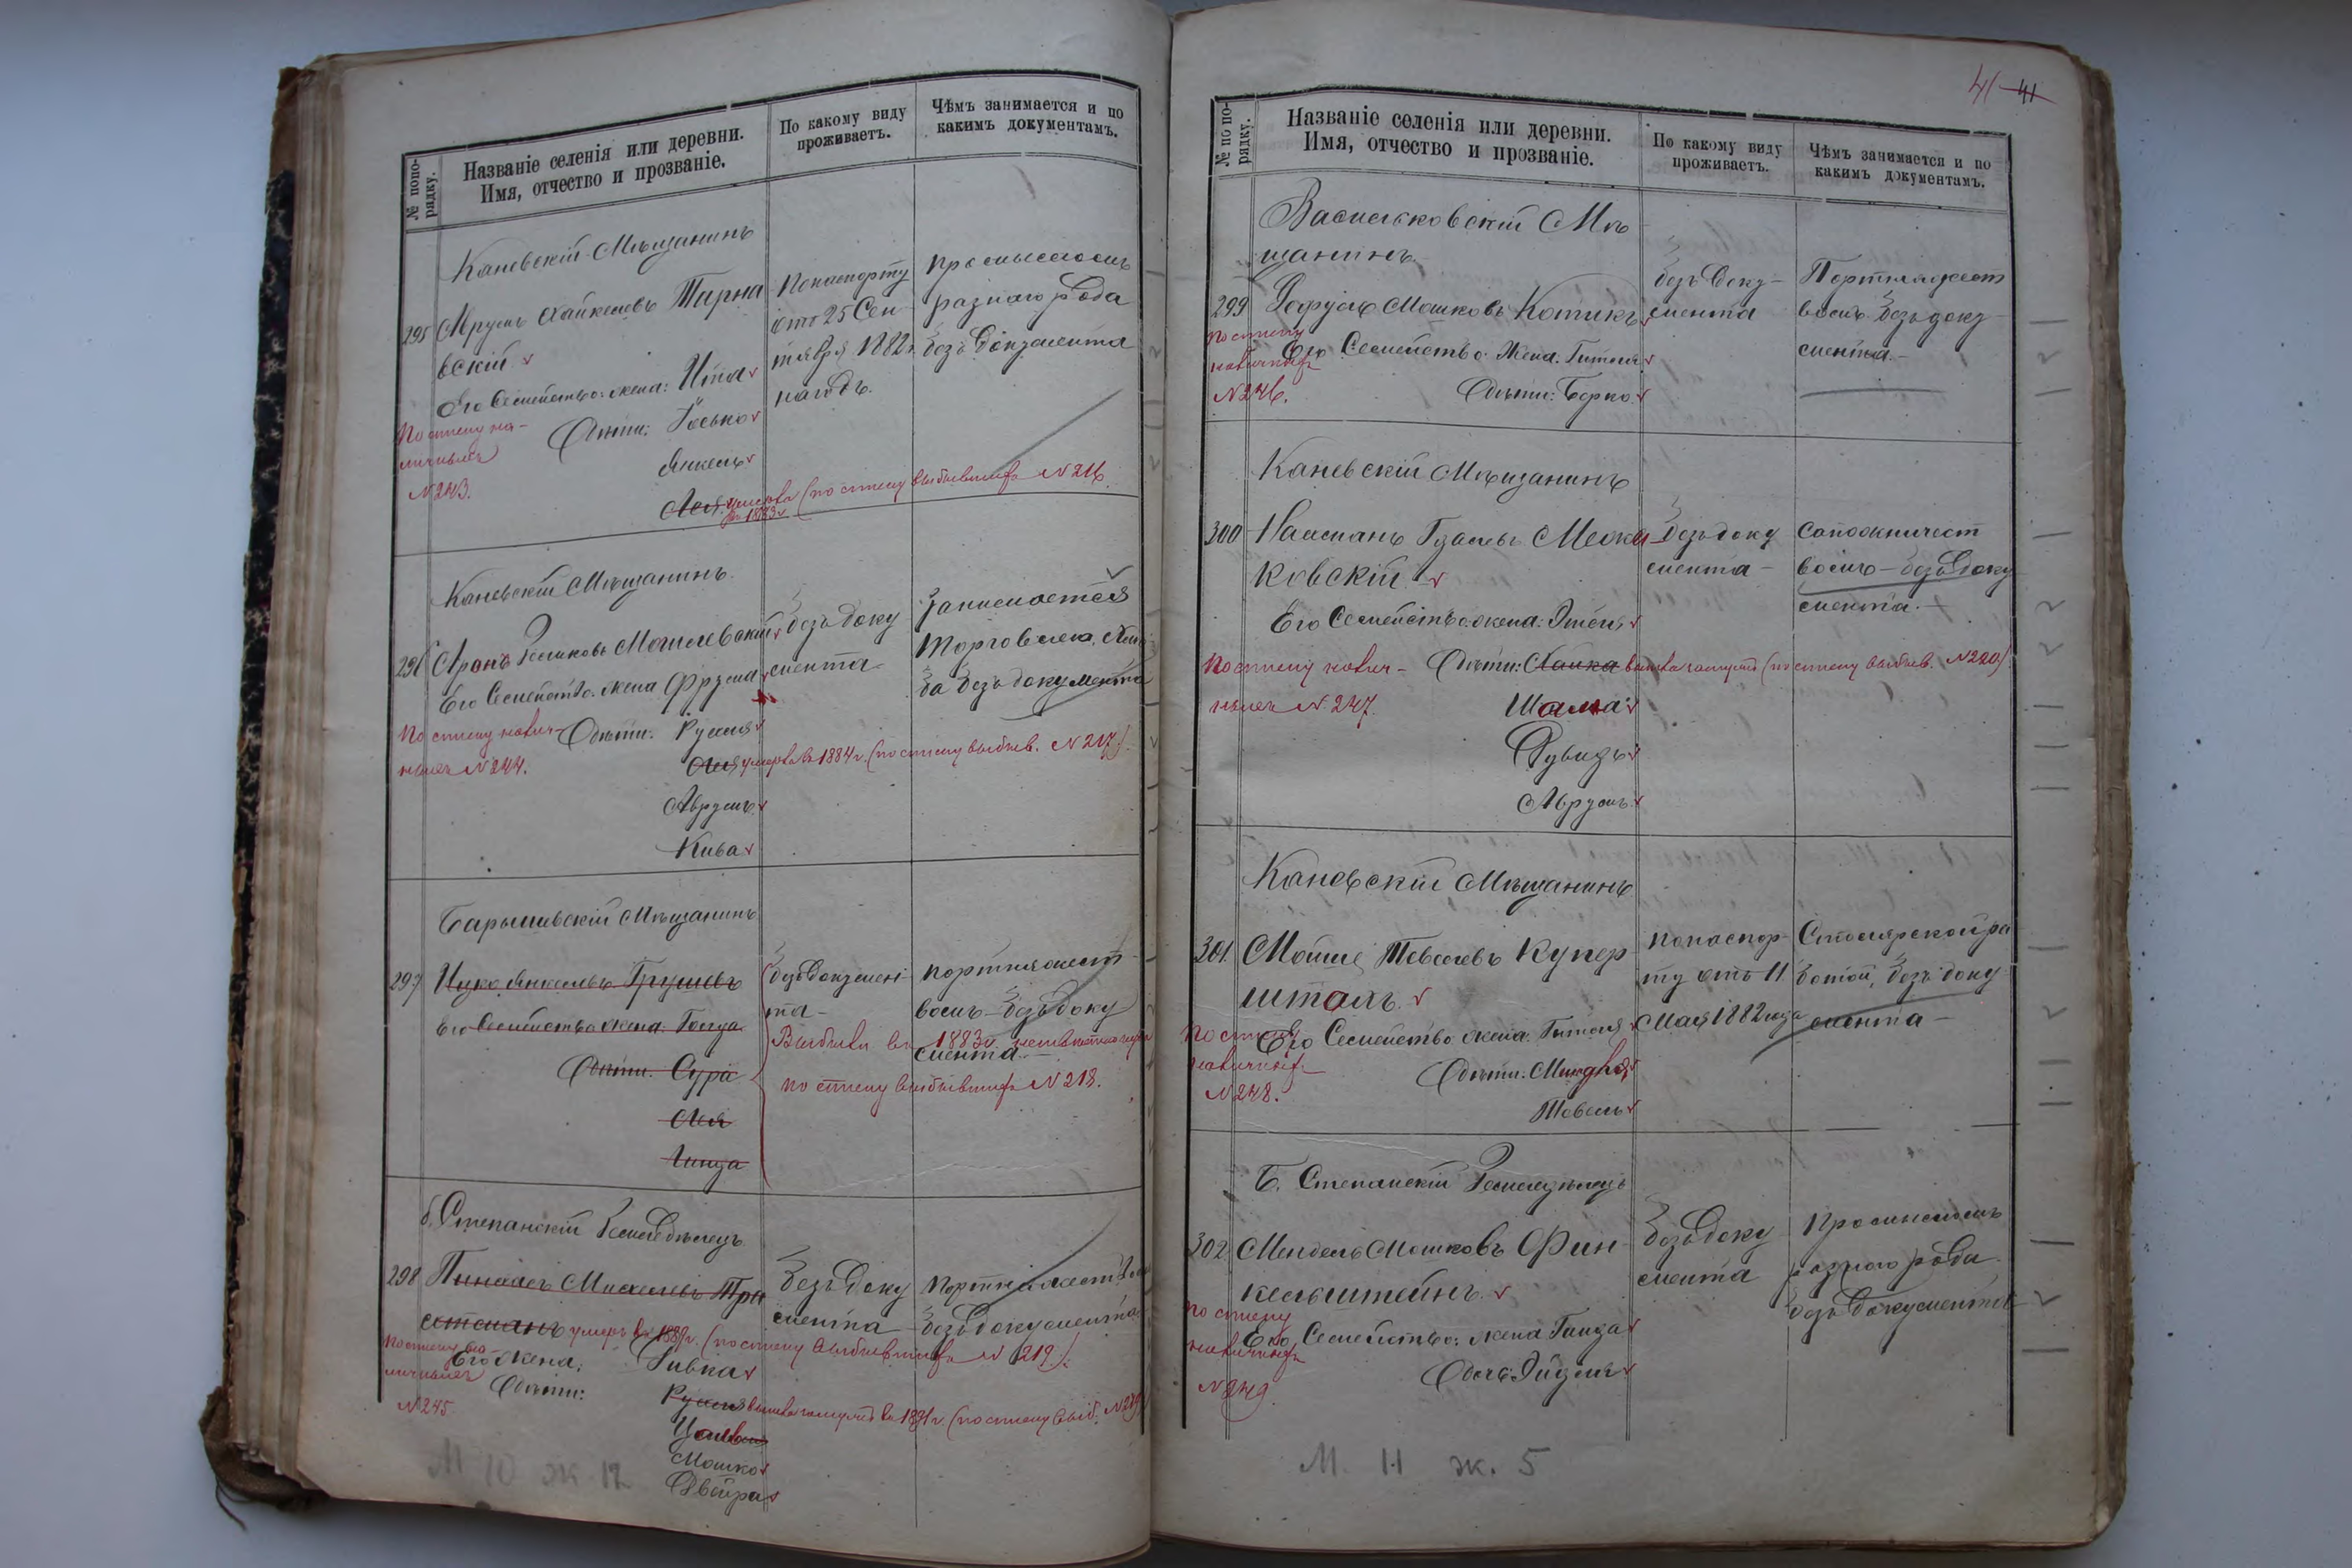 № по по-
рядку.
Названіе селенія или деревни.
Имя, отчество и прозваніе.
По какому виду
проживаетъ.
Чѣмъ занимается и по
какимъ документамъ.
Каневскій Мѣщанинъ
295 Мрумъ Хайкелевъ Тарна
вскій
Его Семейство: жена: Ита
Дѣти: Іосько
Янкель
Лея умерла (по списку выбывшихъ N 216.
въ 1883 г.
По списку на-
личныхъ
N 243.
Попаспорту
отъ 25 Сен
тября 1882 г.
на годъ.
Промысломъ
разнаго рода
безъ документа
Каневскій Мѣщанинъ
296 Аронъ Гешковъ Могилевскій
Его Семейство: жена Фрума
Дѣти: Рухля
Лея умерла въ 1884 г. (по списку выбыв. N 217).
Аврумъ
Кива
По списку налич-
ныхъ N 244.
безъ доку
мента
Занимается
Торговлею,
безъ документа
Барышевскій Мѣщанинъ
297 Ицко Янкелевъ Грушевъ
Его Семейство жена Голда
Дѣти: Сура
Лея
Гинда
безъ докумен-
та-
портняжест-
вомъ-безъ доку
мента.-
Выбыли въ 1883 г.
по списку выбывшихъ N 218.
б. Степанскій Ремеслѣнецъ
298 Пинхасъ Михелевъ Тра
хтманъ умеръ въ 1889 г. (по списку выбывшихъ N 219).
Его жена: Ривка
Дѣти: Рухля вышла замужъ въ 1891 г. (по списку выб. N 219)
Мошко
Двойра
По списку на-
личныхъ
N 245
безъ доку
мента
портняжеств
безъ документа
М 10 ж 12
41 41
№ по по-
рядку.
Названіе селенія или деревни.
Имя, отчество и прозваніе.
По какому виду
проживаетъ.
Чѣмъ занимается и по
какимъ документамъ.
Васильковскій Мѣ
щанинъ
299 Мошковъ Котикъ
Его Семейство: Жена: Гитля
Дѣти: Берко.
По списку
наличныхъ
N 246.
безъ доку-
мента
Портняжест
вомъ безъ доку-
мента.-
Каневскій Мѣщанинъ
300 Нахманъ Межи
ковскій.
Его Семейство: жена: Этля
Дѣти: Хайка вышла замужъ (по списку выбыв. N 220).
Шама
Рувидъ
Аврумъ
По списку налич-
ныхъ N 247.
безъ доку
мента-
Сапожничест
вомъ-безъ доку
мента.-
Каневскій Мѣщанинъ
301. Мойше Тевелевъ Купер
шталъ.
Его Семейство жена: Гитля
Дѣти: Миндля
Тевель
По списку
наличныхъ
N 248.
попаспор-
ту отъ 11
Мая 1882 года
Столярской ра
ботой, безъ доку
мента-
Б. Степанскій Ремеслѣнецъ
302 Мендель Мошковъ Фин-
кельштейнъ.
Его Семейство: жена Ганда
Дочь: Эйдля
По списку
наличныхъ
N 249.
безъ доку
мента
Промысломъ
разнаго рода
безъ документа
М. 11 ж. 5